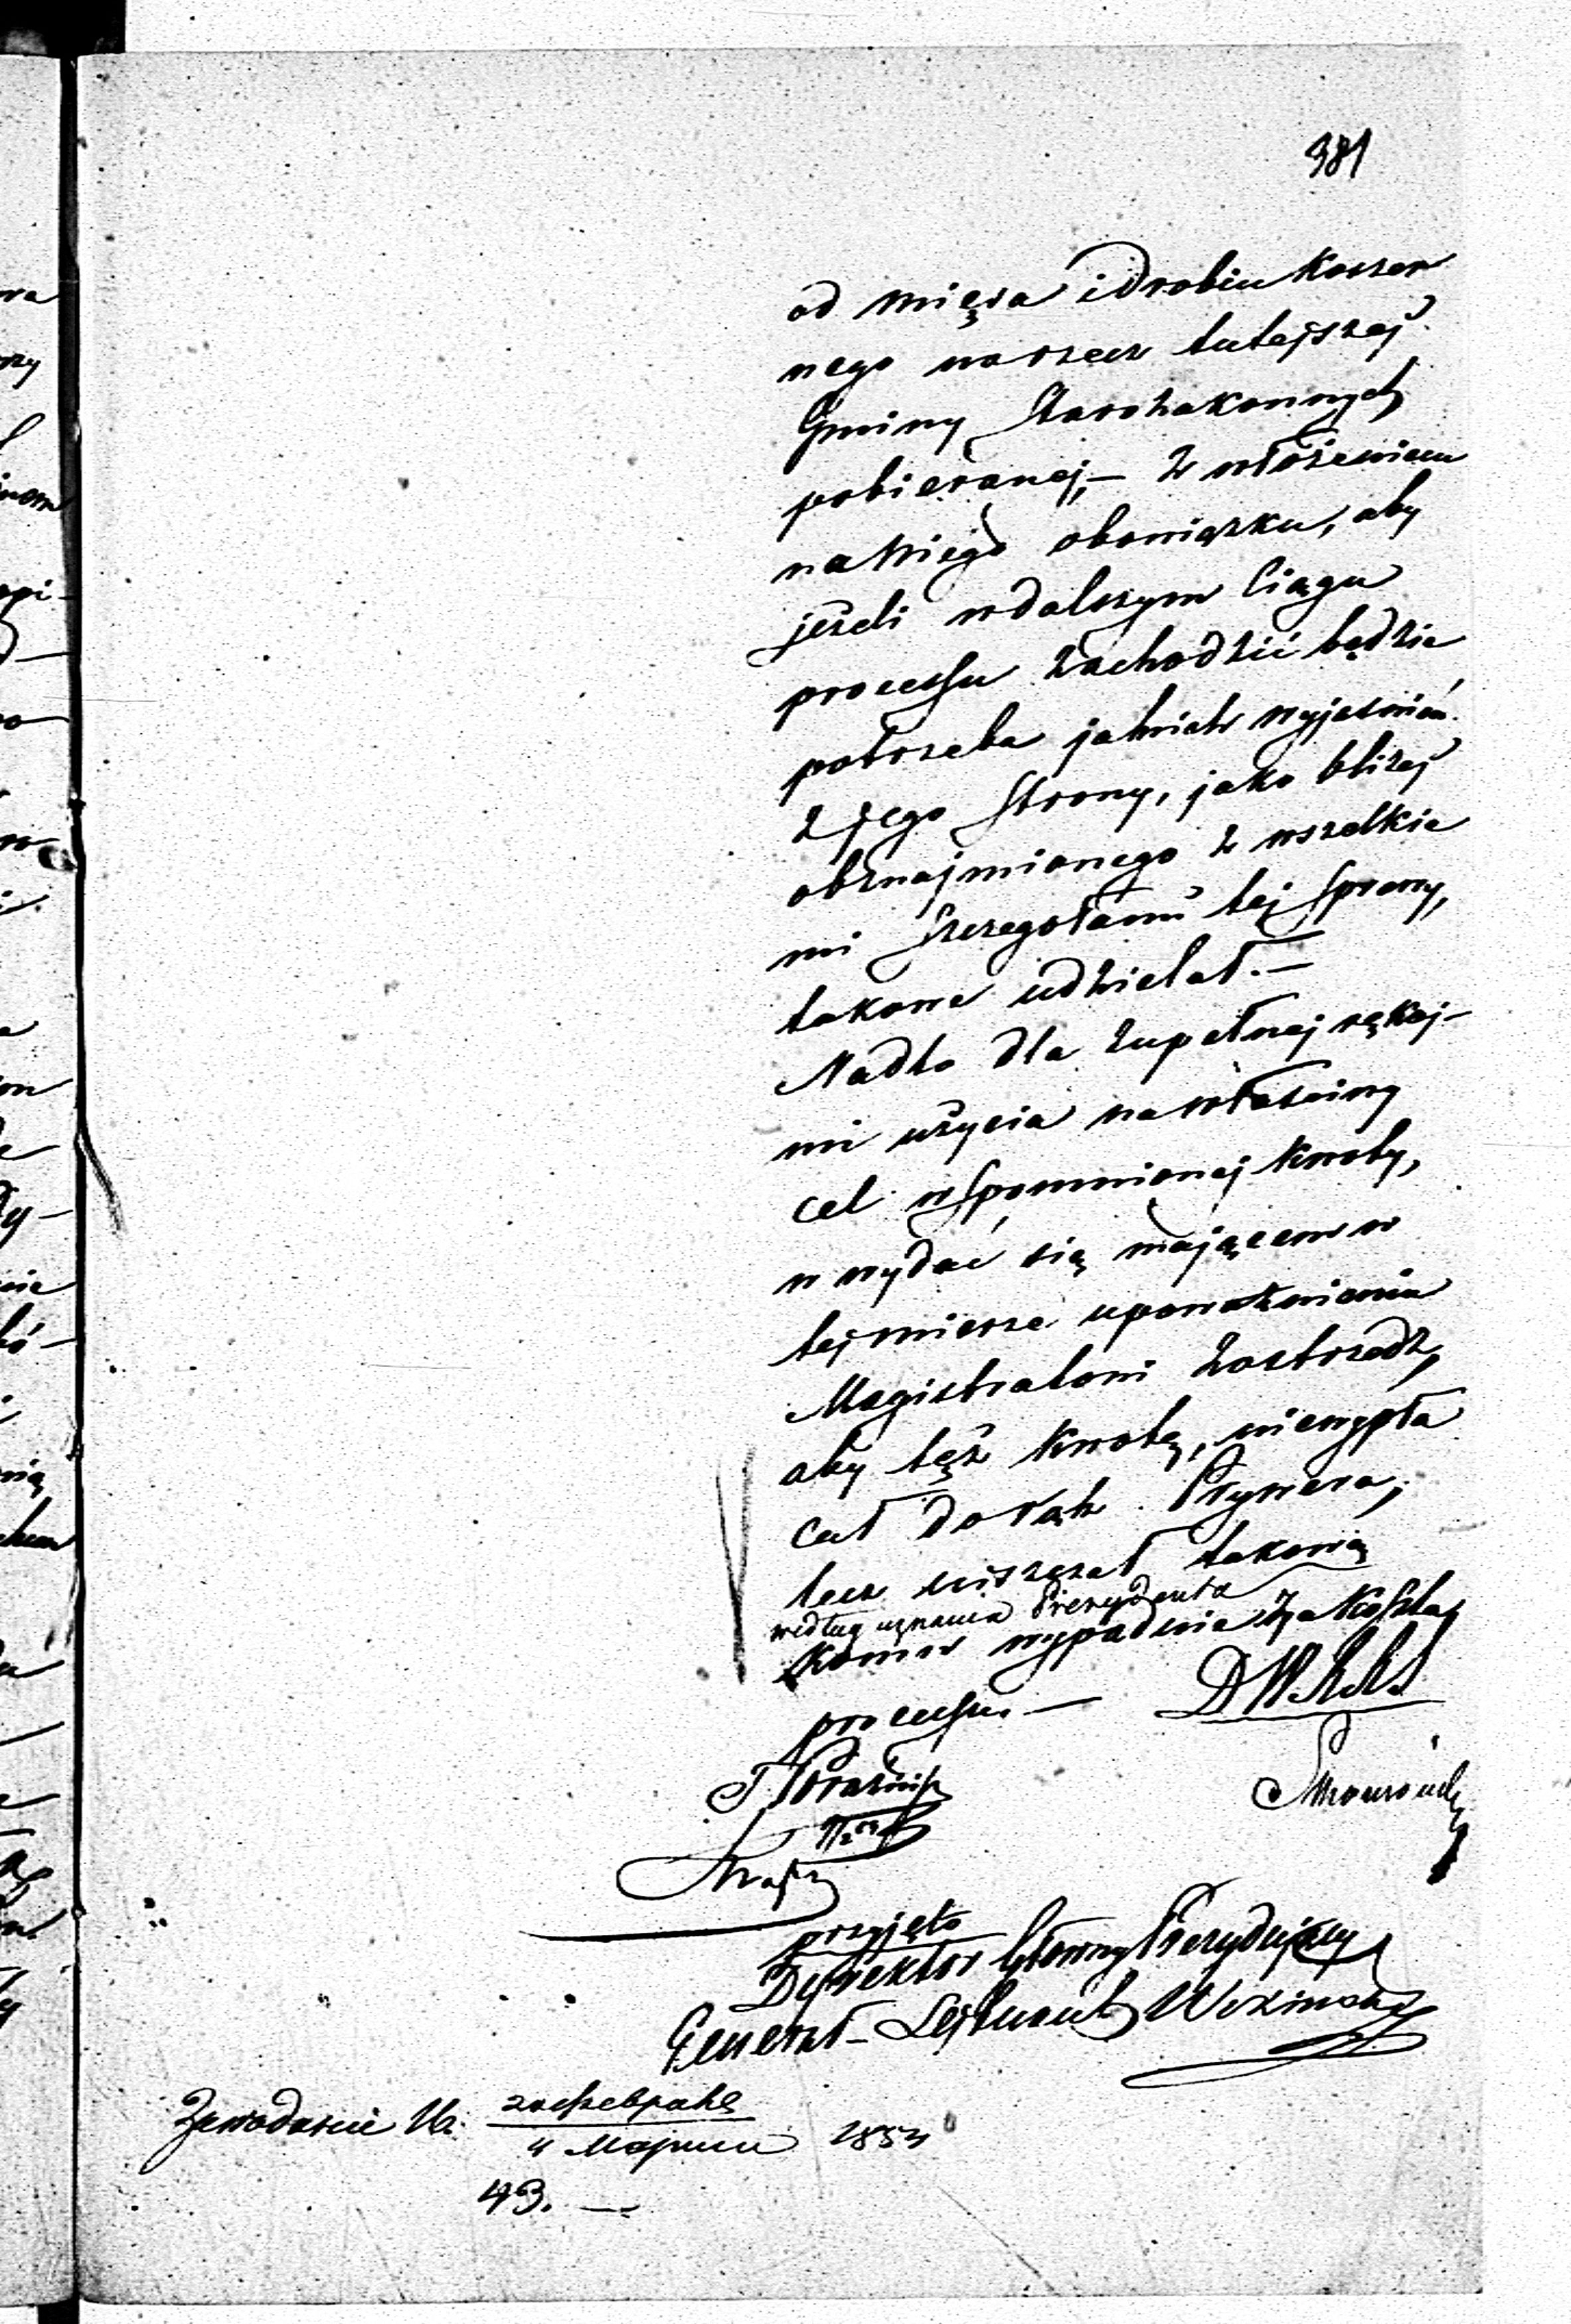 381
od mięsa i Drobiu Koszer
nego na rzecz tutejszej
Gminy Starozakonnych
pobieranej, — z włożeniem
na Niego obowiązku, aby
jeżeli w dalszym Ciągu
processu zachodzić będzie
potrzeba jakich wyjaśnień
z Jego Strony, jako bliżej
obznajmionego z wszelkie
mi Szczegółami tej Sprawy,
takowe udzielał. —
Nadto dla zupełnej rękoj-
mi użycia na właściwy
cel wspomnionej Kwoty,
w wydać się mającem w
tej mierze upoważnieniu
Magistratowi zastrzedz,
aby tęż Kwotę, niewypła
cał do rąk Prywera,
lecz uiszczał takową
według uznania Prezydenta
Komu wypadnie za Koszta
processu. —
przyjęto
Dyrektor Główny Prezydujący
Generał-Lejtnant Wikiński
4 Марта 1853
43. —